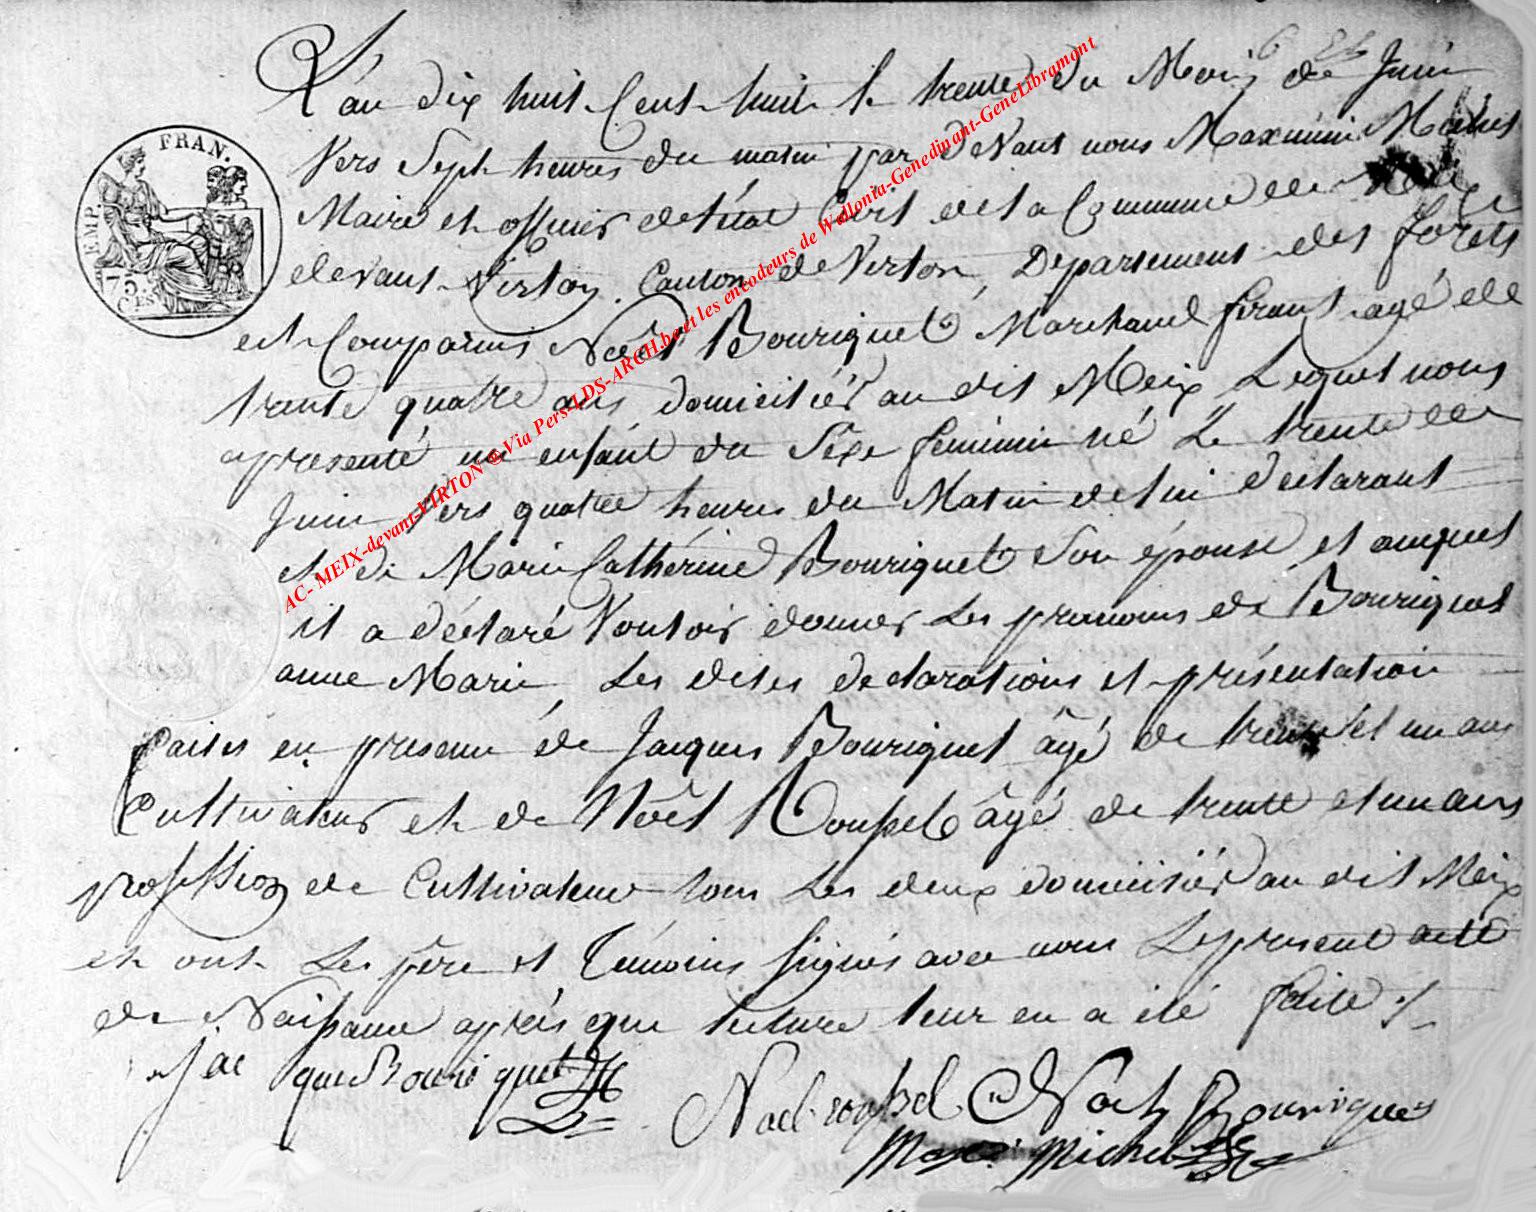 L'an dix huit Cent huit le trente du Mois de Juin
Vers Sept heures du matin par devant nous Maximin
Maire et officier de l'état Civil de la Commune de Meix
devant Virton, Canton de Virton, Departement des forets
est Comparus Noël Bouriquet Marchand forant agé de
trente quatre ans domicilié au dit Meix Lequel nous
apresenté un enfant du Sexe feminin né Le trente de
Juin Vers quatre heures du Matin de lui declarant
et de Marie Cathérine Bouriquet Son épouse et auquel
il a déclaré Vouloir donner Les prenoms de Bouriquet
anne Marie, Les dites declarations et présentation
faites en presence de Jacques Bouriquet âgé de trente et un ans
Cultivateur et de Noël Roussel âgé de trente et un ans
profession de Cultivateur tous Les deux domiciliés au dit Meix
et ont Les père et Témoins signés avec nous Le present acte
de Naissance après que lecture leur en a été faite ./.
Jac que Bouriquet
Noel roussel Noel Bouriquet
Michel
FRAN.
EMP.
75.
C.ES
AC- MEIX-devant-VIRTON © Via Pers-LDS-ARCH.be et les encodeurs de Wallonia-Genedinant-GeneLibramont